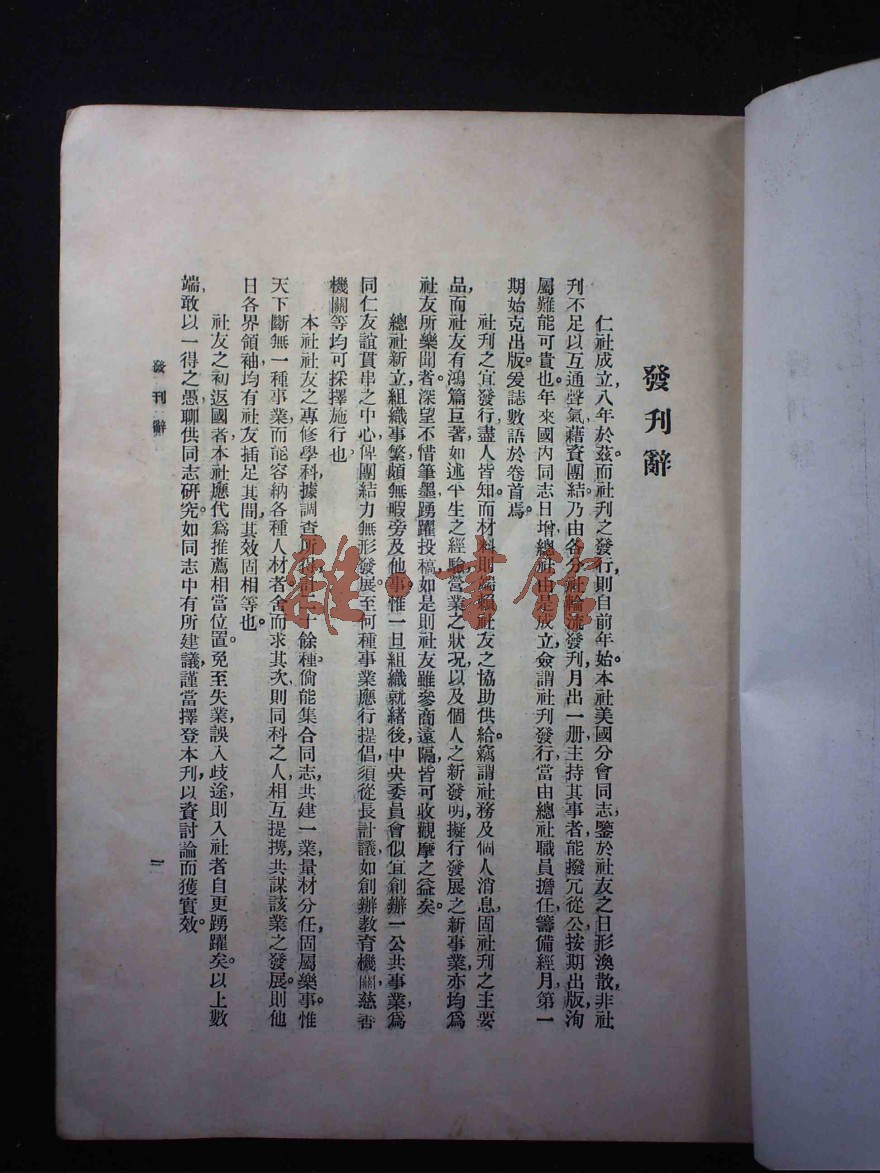 發刊辭
仁社成立八年於茲。而社刊之發行則自前年始。本社美國分會同志鑒於社友之日形渙散非社
刊不足以互通聲氣藉資團結乃由各分社輪流發刊月出一册主持其事者能撥冗從公按期出版洵
屬難能可貴也年來國內同志日增總社由是成立僉謂社刊發行當由總社職員擔任籌備經月第一
期始克出版爰誌數語於卷首焉。
社刊之宜發行盡人皆知。而材料則端賴社友之協助供給。竊謂社務及個人消息固社刊之主要
品而社友有鴻篇巨著如述平生之經驗營業之狀況以及個人之新發明擬行發展之新事業亦均為
社友所樂聞者深望不惜筆墨踴躍投稿如是則社友雖參商遠隔皆可收觀摩之益矣。
總社新立組織事繁頗無暇旁及他事惟一旦組織就緒後中央委員會似宜創辦一公共事業為
同仁友誼貫串之中心俾團結力無形發展至何種事業應行提倡須從長計議如創辦教育機關慈善
機關等均可採擇施行也
本社社友之專修學科據調查所得計十餘種倘能集合同志共建一業量材分任固屬樂事。惟
天下斷無一種事業而能容納各種人材者舍而求其次則同科之人相互提携共謀該業之發展。則他
日各界領袖均有社友插足其間其效固相等也。
社友之初返國者本社應代為推薦相當位置。免至失業誤入歧途則入社者自更踴躍矣。以上數
端敢以一得之愚聊供同志研究。如同志中有所建議謹當擇登本刊以資討論而獲實效。
發刊辭
一
雜·書館